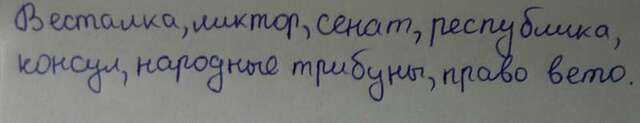 Весталка, ликтор, сенат, республика,
консул, народные трибуны, право вето.